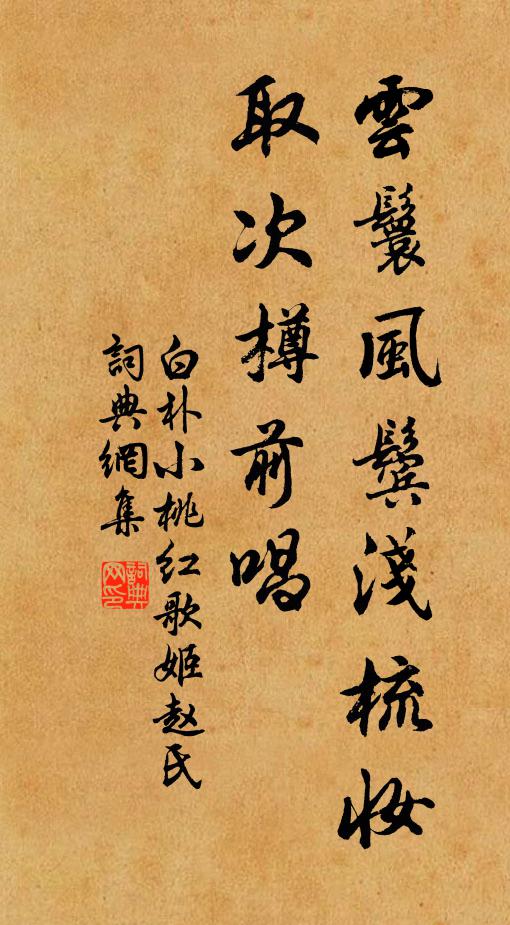 雲鬟風鬢淺梳妝
取次樽前唱
白朴小桃红歌姬赵氏
詞典網集
詞典網印